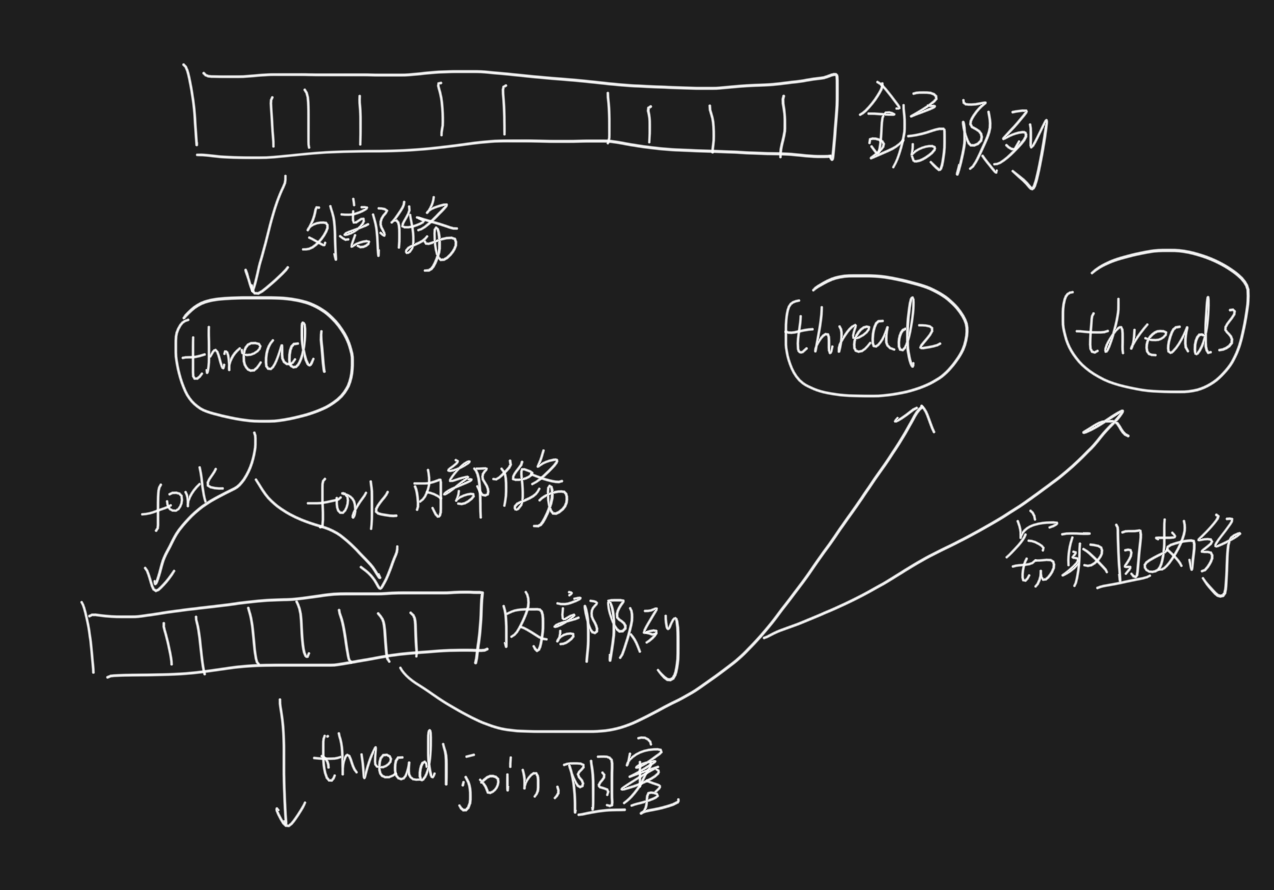 全局队列
外部任务
thread1
thread2
thread3
fork
fork 内部任务
窃取且执行
内部队列
thread1 join,阻塞